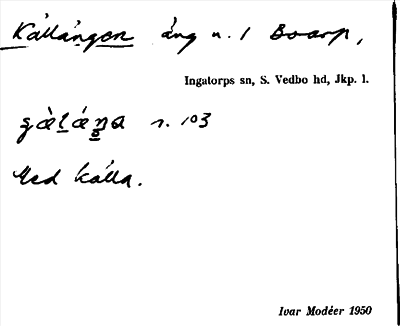 Källängen äng n. 1 Boarp,
Ingatorps sn, S. Vedbo hd, Jkp. l.
s. 103
Med källa.
Ivar Modéer 1950